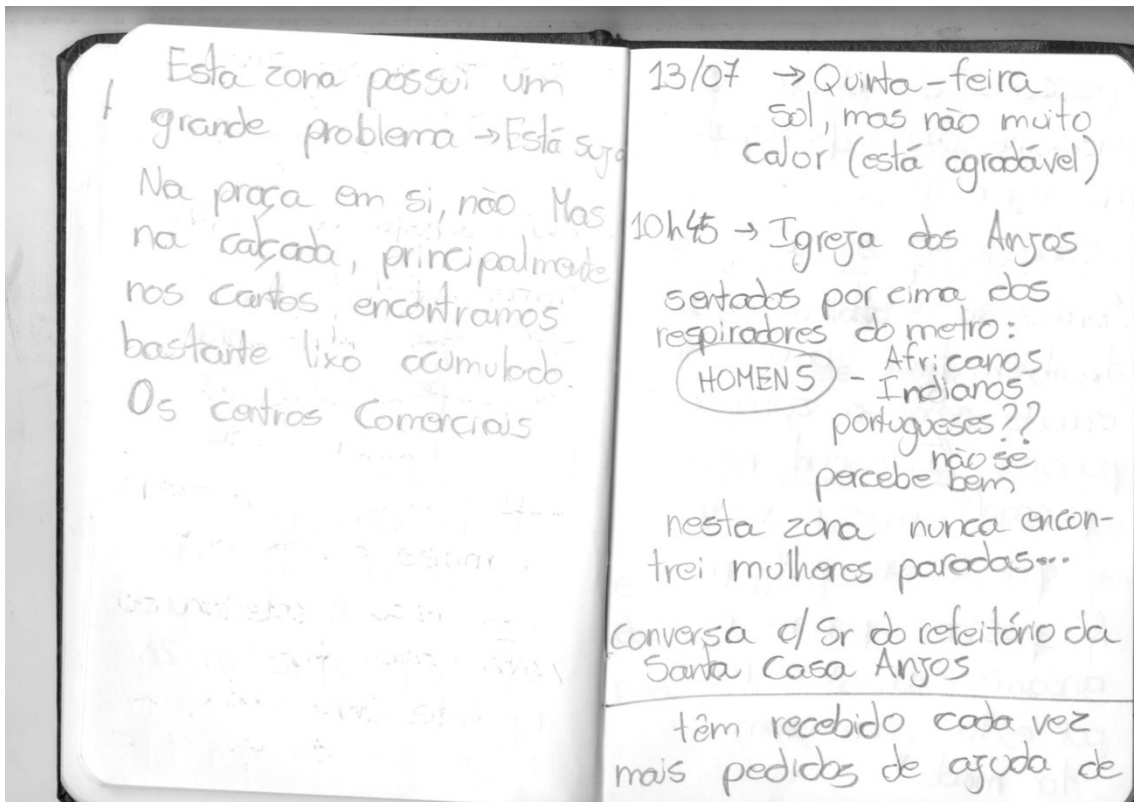 Esta zona possui um
grande problema → Está suja
Na praça em si, não Mas
na calçada, principalmente
nos cantos encontramos
bastante lixo acumulado.
Os centros Comerciais
13/07 → Quinta-feira
sol, mas não muito
calor (está agradável)
10h45 → Igreja dos Anjos
sentados por cima dos
respiradores do metro:
HOMENS - Africanos
Indianos
portugueses??
não se
percebe bem
nesta zona nunca encon-
trei mulheres paradas...
conversa c/ Sr do refeitório da
Santa Casa Anjos
têm recebido cada vez
mais pedidos de ajuda de